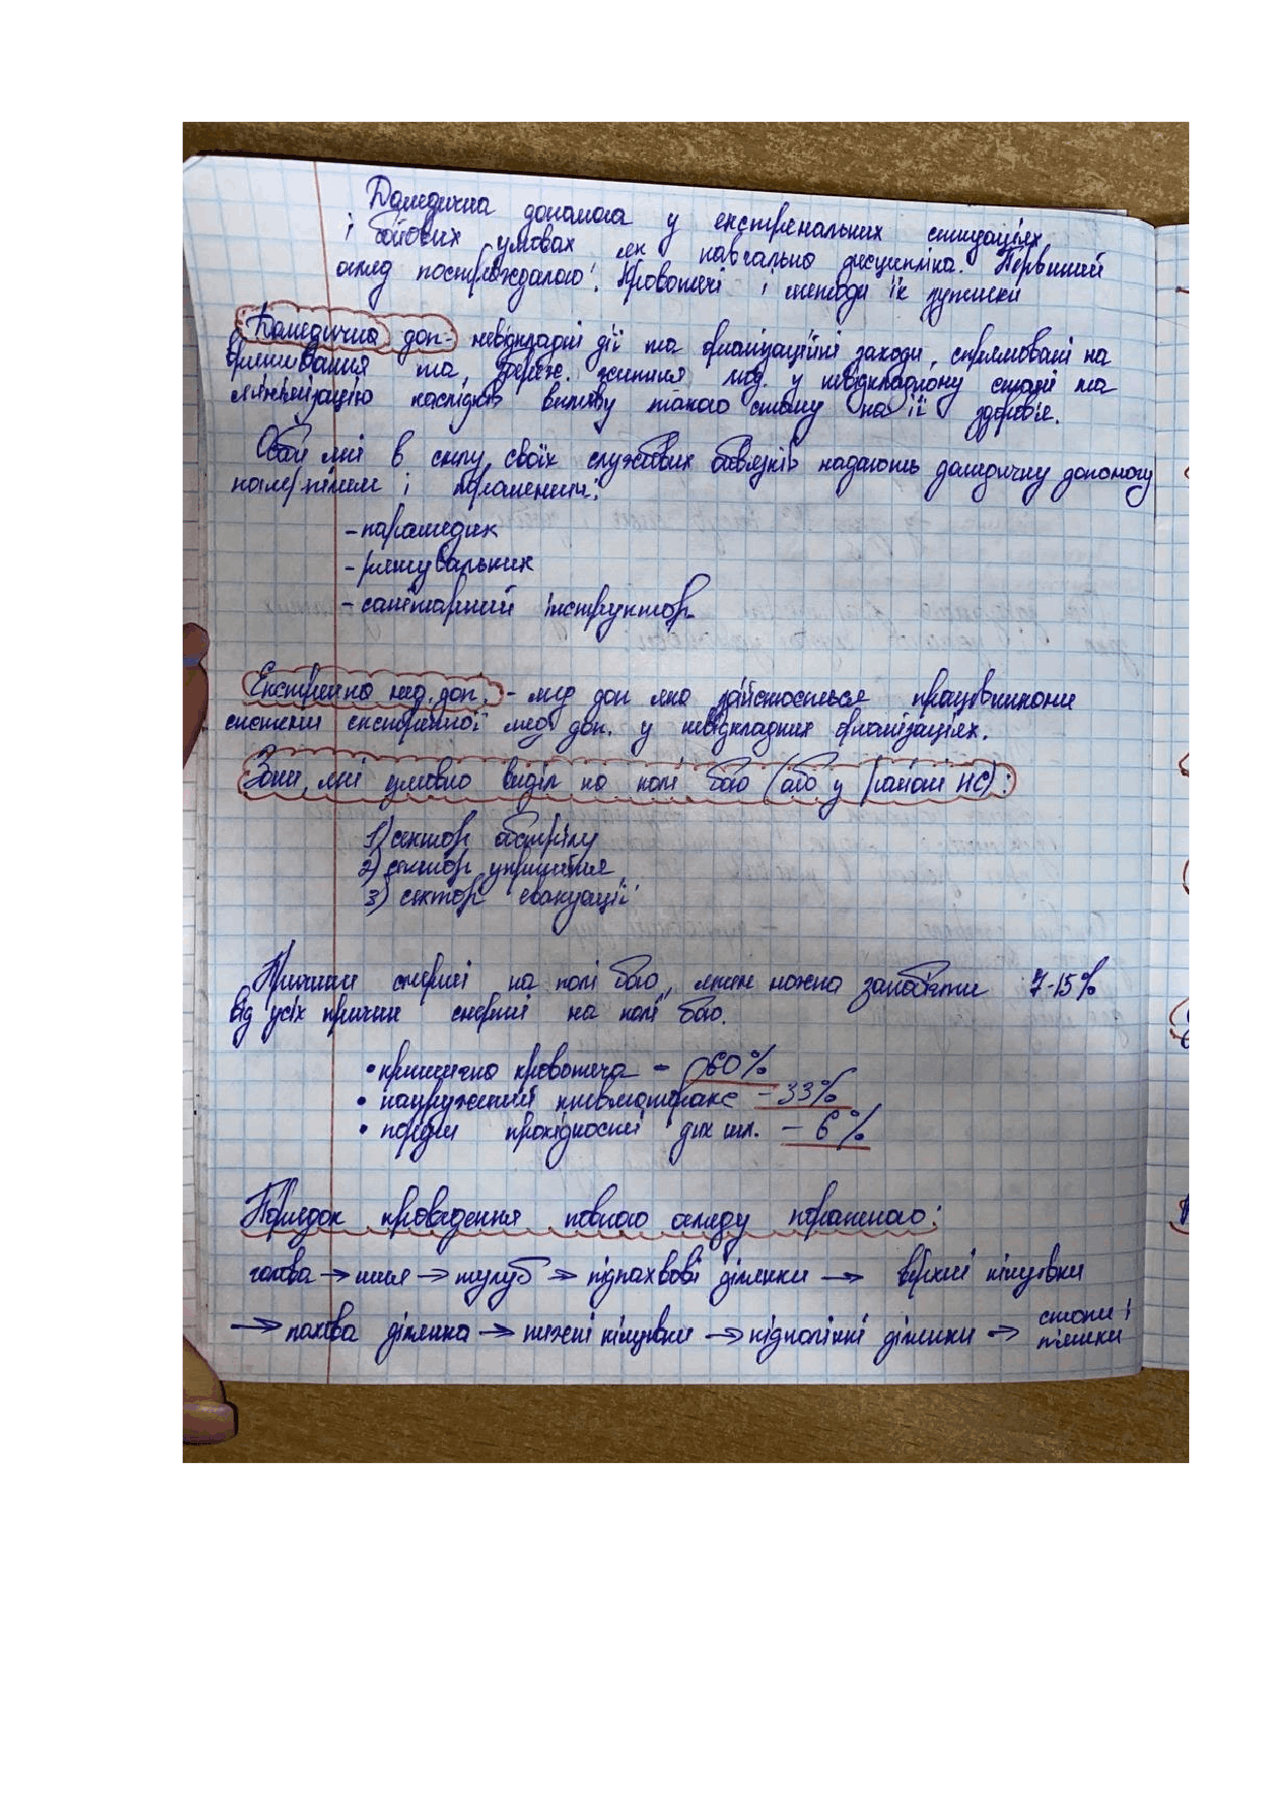 Домедична допомога у екстремальних ситуаціях
і бойових умовах як навчальна дисципліна. Первинний
огляд постраждалого. Кровотечі і методи їх зупинки
Домедична доп- невідкладні дії та організаційні заходи, спрямовані на
врятування та збереж. життя люд. у невідкладному стані та
мінімізацію наслідків впливу такого стану на її здоров'я.
Особи які в силу своїх службових обов'язків надають домедичну допомогу
потерпілим і пораненим:
- парамедик
- рятувальник
- санітарний інструктор
Екстрена мед. доп. - мед доп яка здійснюється працівниками
системи екстренної мед доп. у невідкладних організаціях.
Зони, які умовно виділ на полі бою (або у районі НС):
1) сектор обстрілу
2) сектор укриття
3) сектор евакуації
Причини смерті на полі бою, яким можна запобігти 7-15%
від усіх причин смерті на полі бою.
• критична кровотеча - 60%
• напружений пневмоторакс - 33%
• поруш прохідності дих шл. - 6%
Порядок проведення повного огляду пораненого:
голова → шия → тулуб → підпахвові ділянки → верхні кінцівки
→ пахова ділянка → нижні кінцівки → підколінні ділянки → стопи і
п'ятки